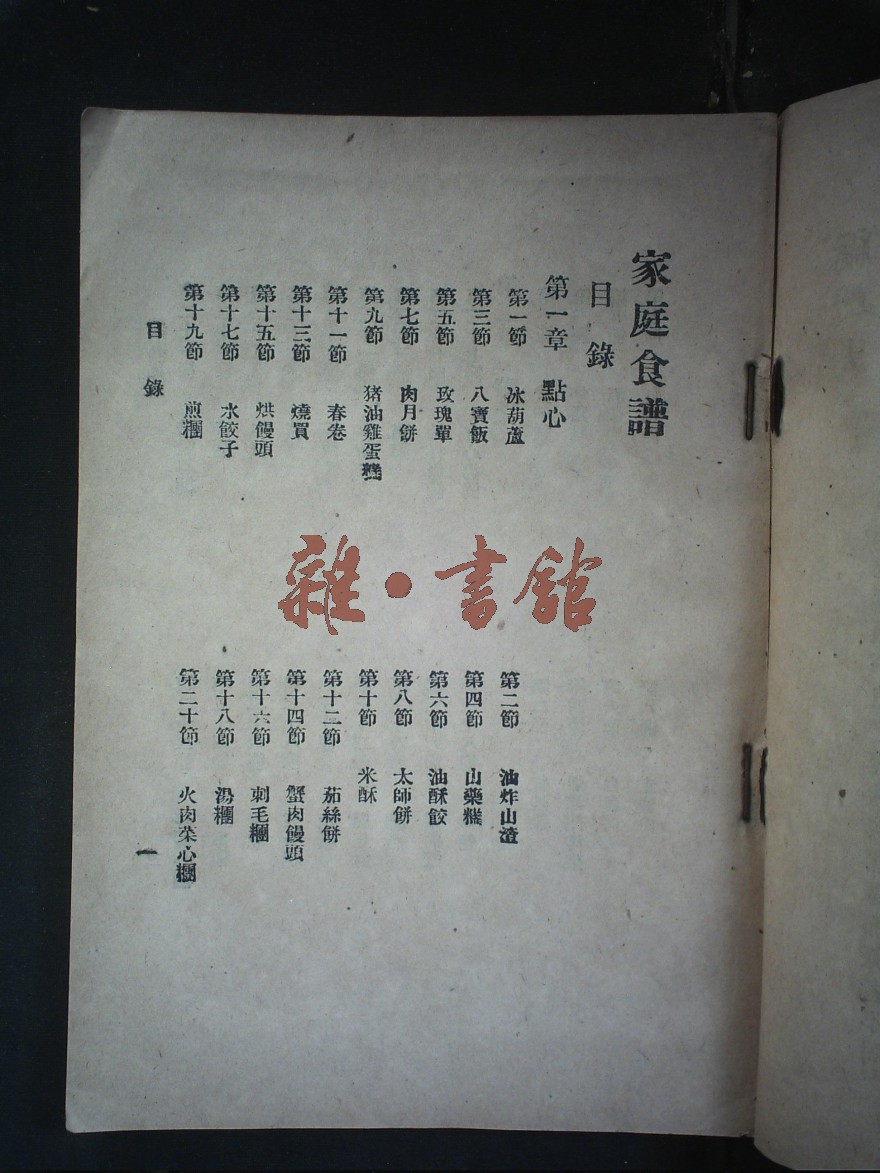 家庭食譜
目錄
第一章 點心
第一節 冰葫蘆
第二節 油炸山渣
第三節 八寶飯
第四節 山藥糕
第五節 玫瑰單
第六節 油酥餃
第七節 肉月餅
第八節 太師餅
第九節 猪油雞蛋糕
第十節 米酥
第十一節 春卷
第十二節 茄絲餅
第十三節 燒買
第十四節 蟹肉饅頭
第十五節 烘饅頭
第十六節 刺毛糰
第十七節 水餃子
第十八節 湯糰
第十九節 煎糰
第二十節 火肉菜心糰
目錄
一
雜·書館